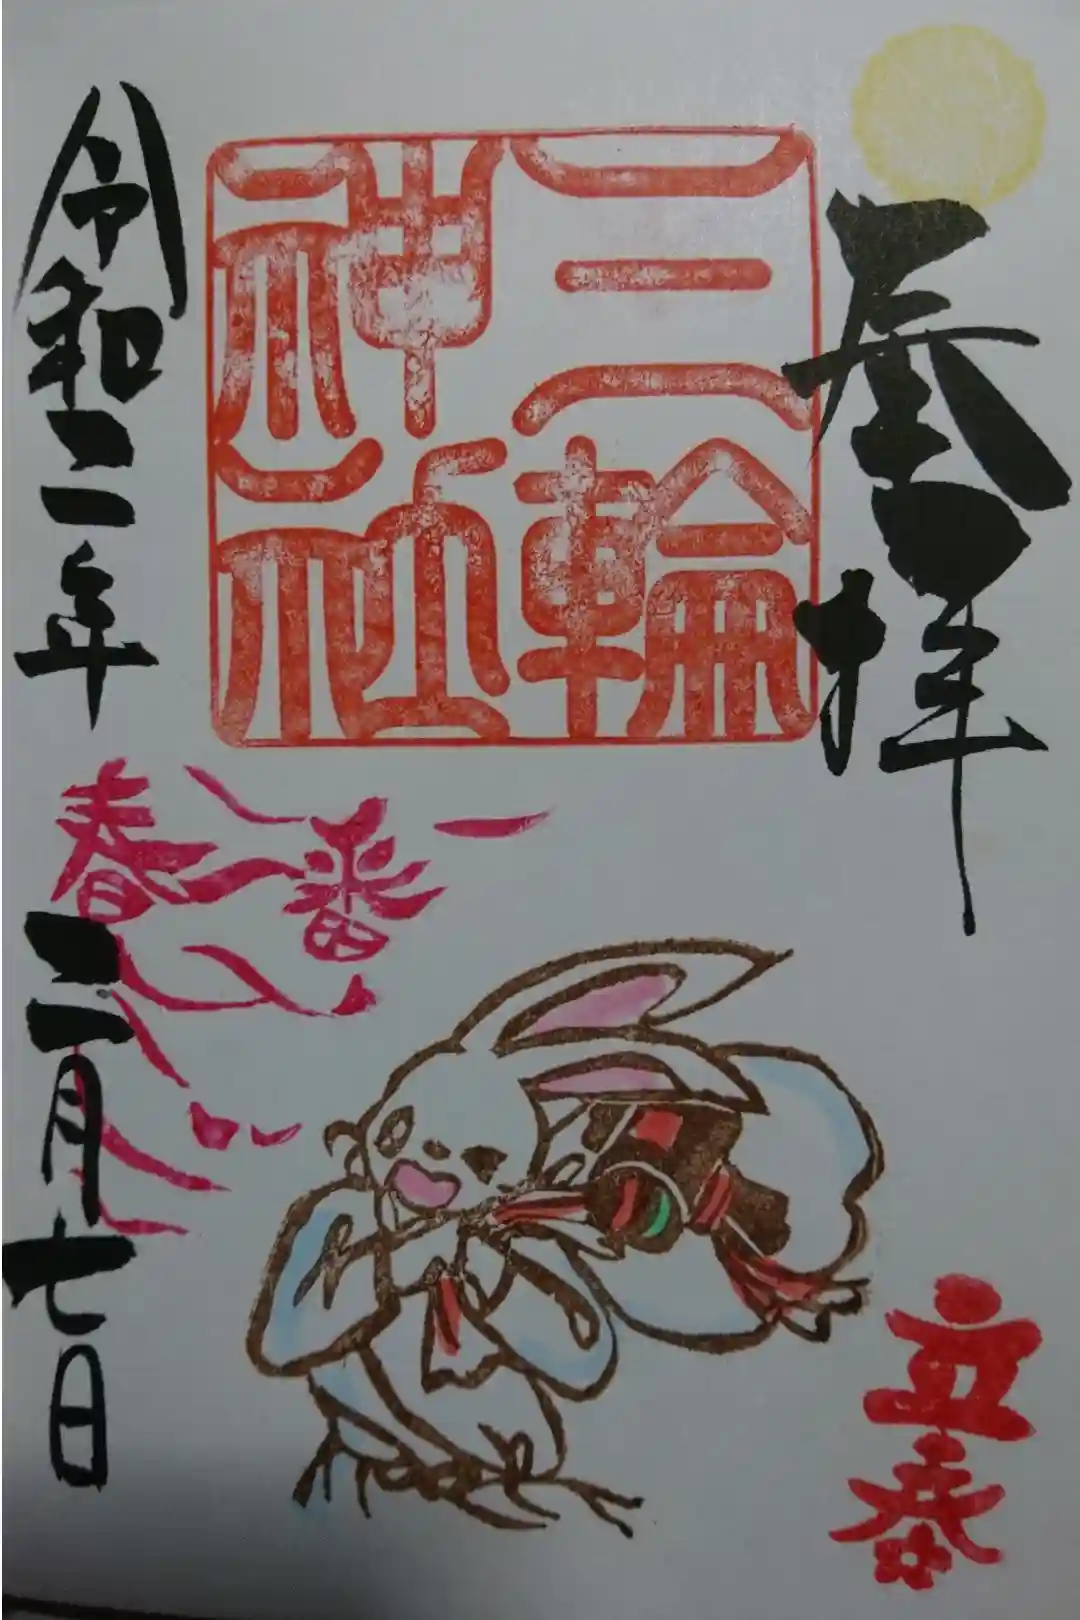 奉拝
三輪
神社
立春
春一番
令和二年
二月七日